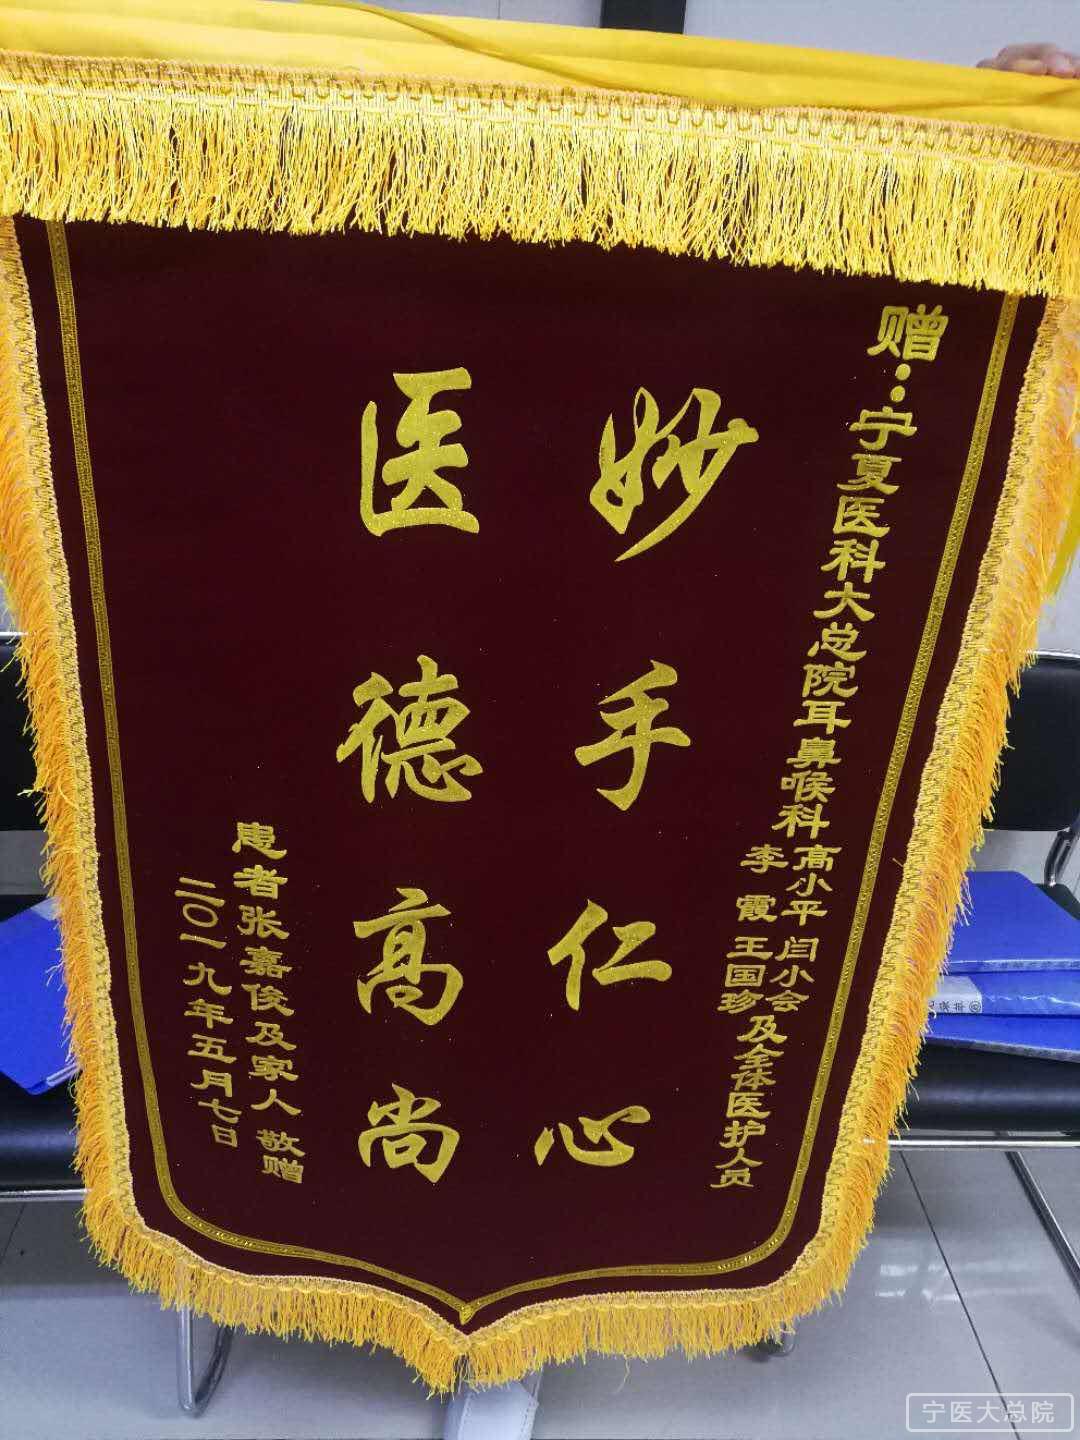 赠：宁夏医科大总院耳鼻喉科高小平 闫小会
李霞 王国珍及全体医护人员
妙手仁心
医德高尚
患者张嘉俊及家人 敬赠
二〇一九年五月七日
宁医大总院